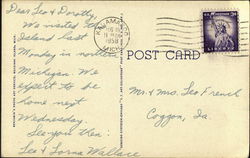 Dear Leo & Dorothy,
We visited
Island last
Monday in northern
Michigan. We
expect to be
home next
Wednesday.
See you then.
Leo & Lorna Wallace
KALAMAZOO
1958
MICH.
U.S. POSTAGE
3¢
LIBERTY
POST CARD
Mr & Mrs. Leo French
Coggon, Ia.